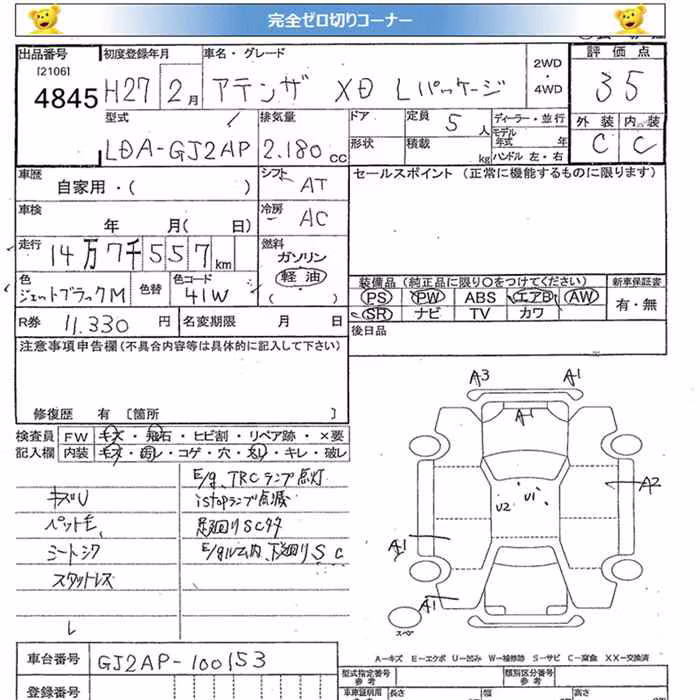 完全ゼロ切りコーナー
出品番号
[2106]
4845
初度登録年月
H27 2月
車名・グレード
アテンザ XD Lパッケージ
2WD
・
4WD
評価点
3.5
外装 内装
C C
型式
LDA-GJ2AP
排気量
2.180 cc
ドア
形状
定員 5人
積載 kg
ディーラー・並行
モデル年式 年
ハンドル 左・右
車歴
自家用・( )
シフト AT
セールスポイント (正常に機能するものに限ります)
車検
年 月( 日)
冷房 AC
走行 14万7千557km
燃料
ガソリン
軽油
( )
色 ジェットブラックM
色替
色コード 41W
装備品 (純正品に限り○をつけてください)
PS PW ABS エアB AW
SR ナビ TV カワ
新車保証書
有・無
R券 11.330 円
名変期限 月 日
後日品
注意事項申告欄(不具合内容等は具体的に記入して下さい)
修復歴 有 [箇所 ]
検査員
記入欄
FW キズ・飛石・ヒビ割・リペア跡・×要
内装 キズ・汚レ・コゲ・穴・スレ・キレ・破レ
E/g, TRCランプ点灯
キズU
istopランプ点滅
ペット毛
足廻りSCサタ
シートシワ
E/gルム内、下廻りSC
スタットレス
A3 A1
A1
U2 U1
A2
A1
A1
スペア
A−キズ E−エクボ U−凹み W−補修跡 S−サビ C−腐食 XX−交換済
車台番号 GJ2AP-100153
登録番号
型式指定番号
参考
類別区分番号
参考
長さ 幅 高さ